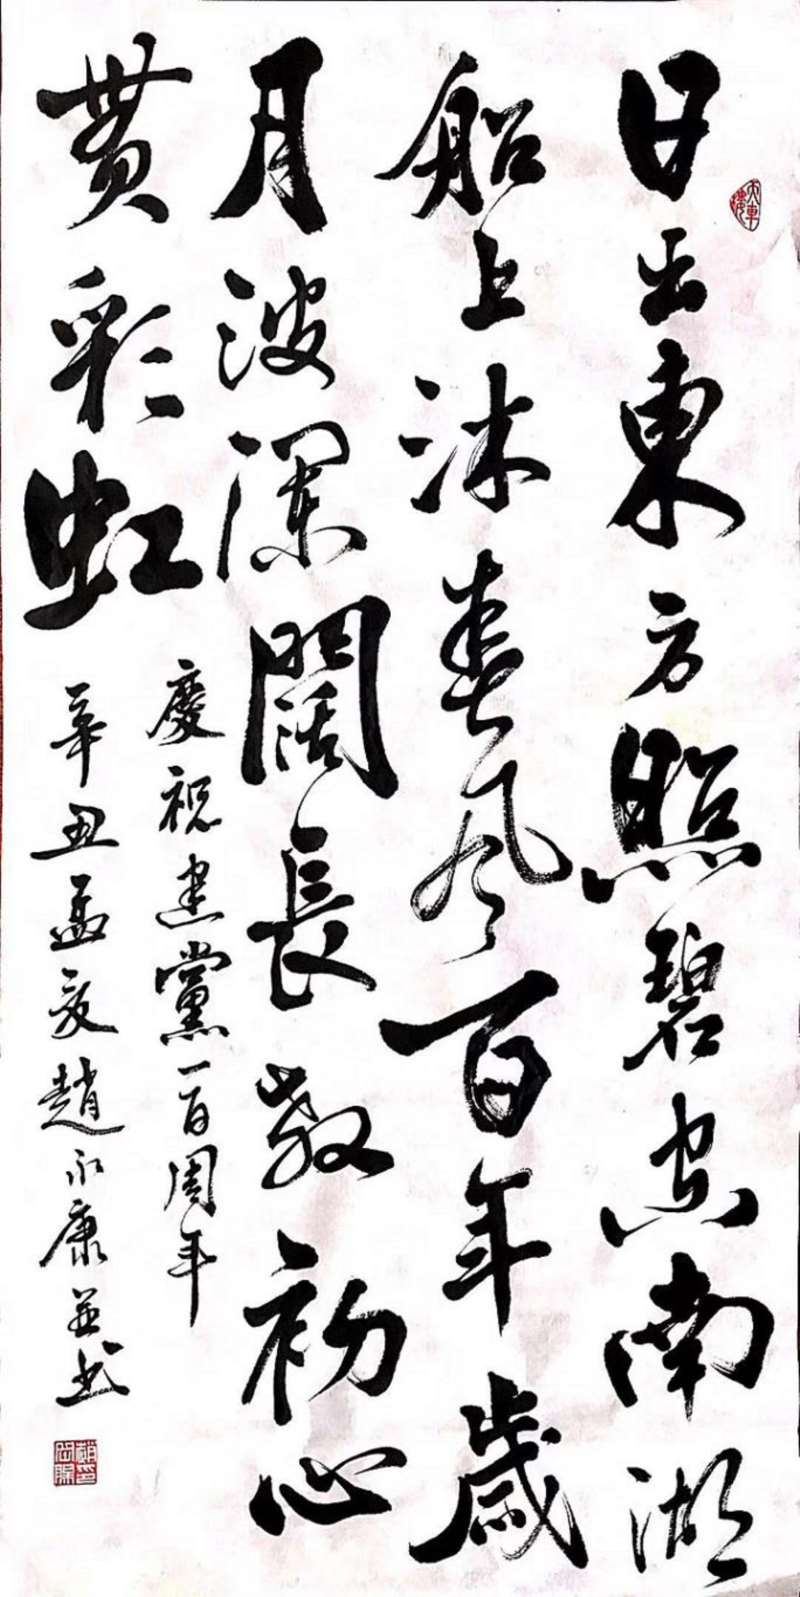 日出東方照碧空南湖
船上沐春風百年歲
月波瀾闊長教初心
貫彩虹
慶祝建黨一百周年
辛丑孟夏趙永康並书